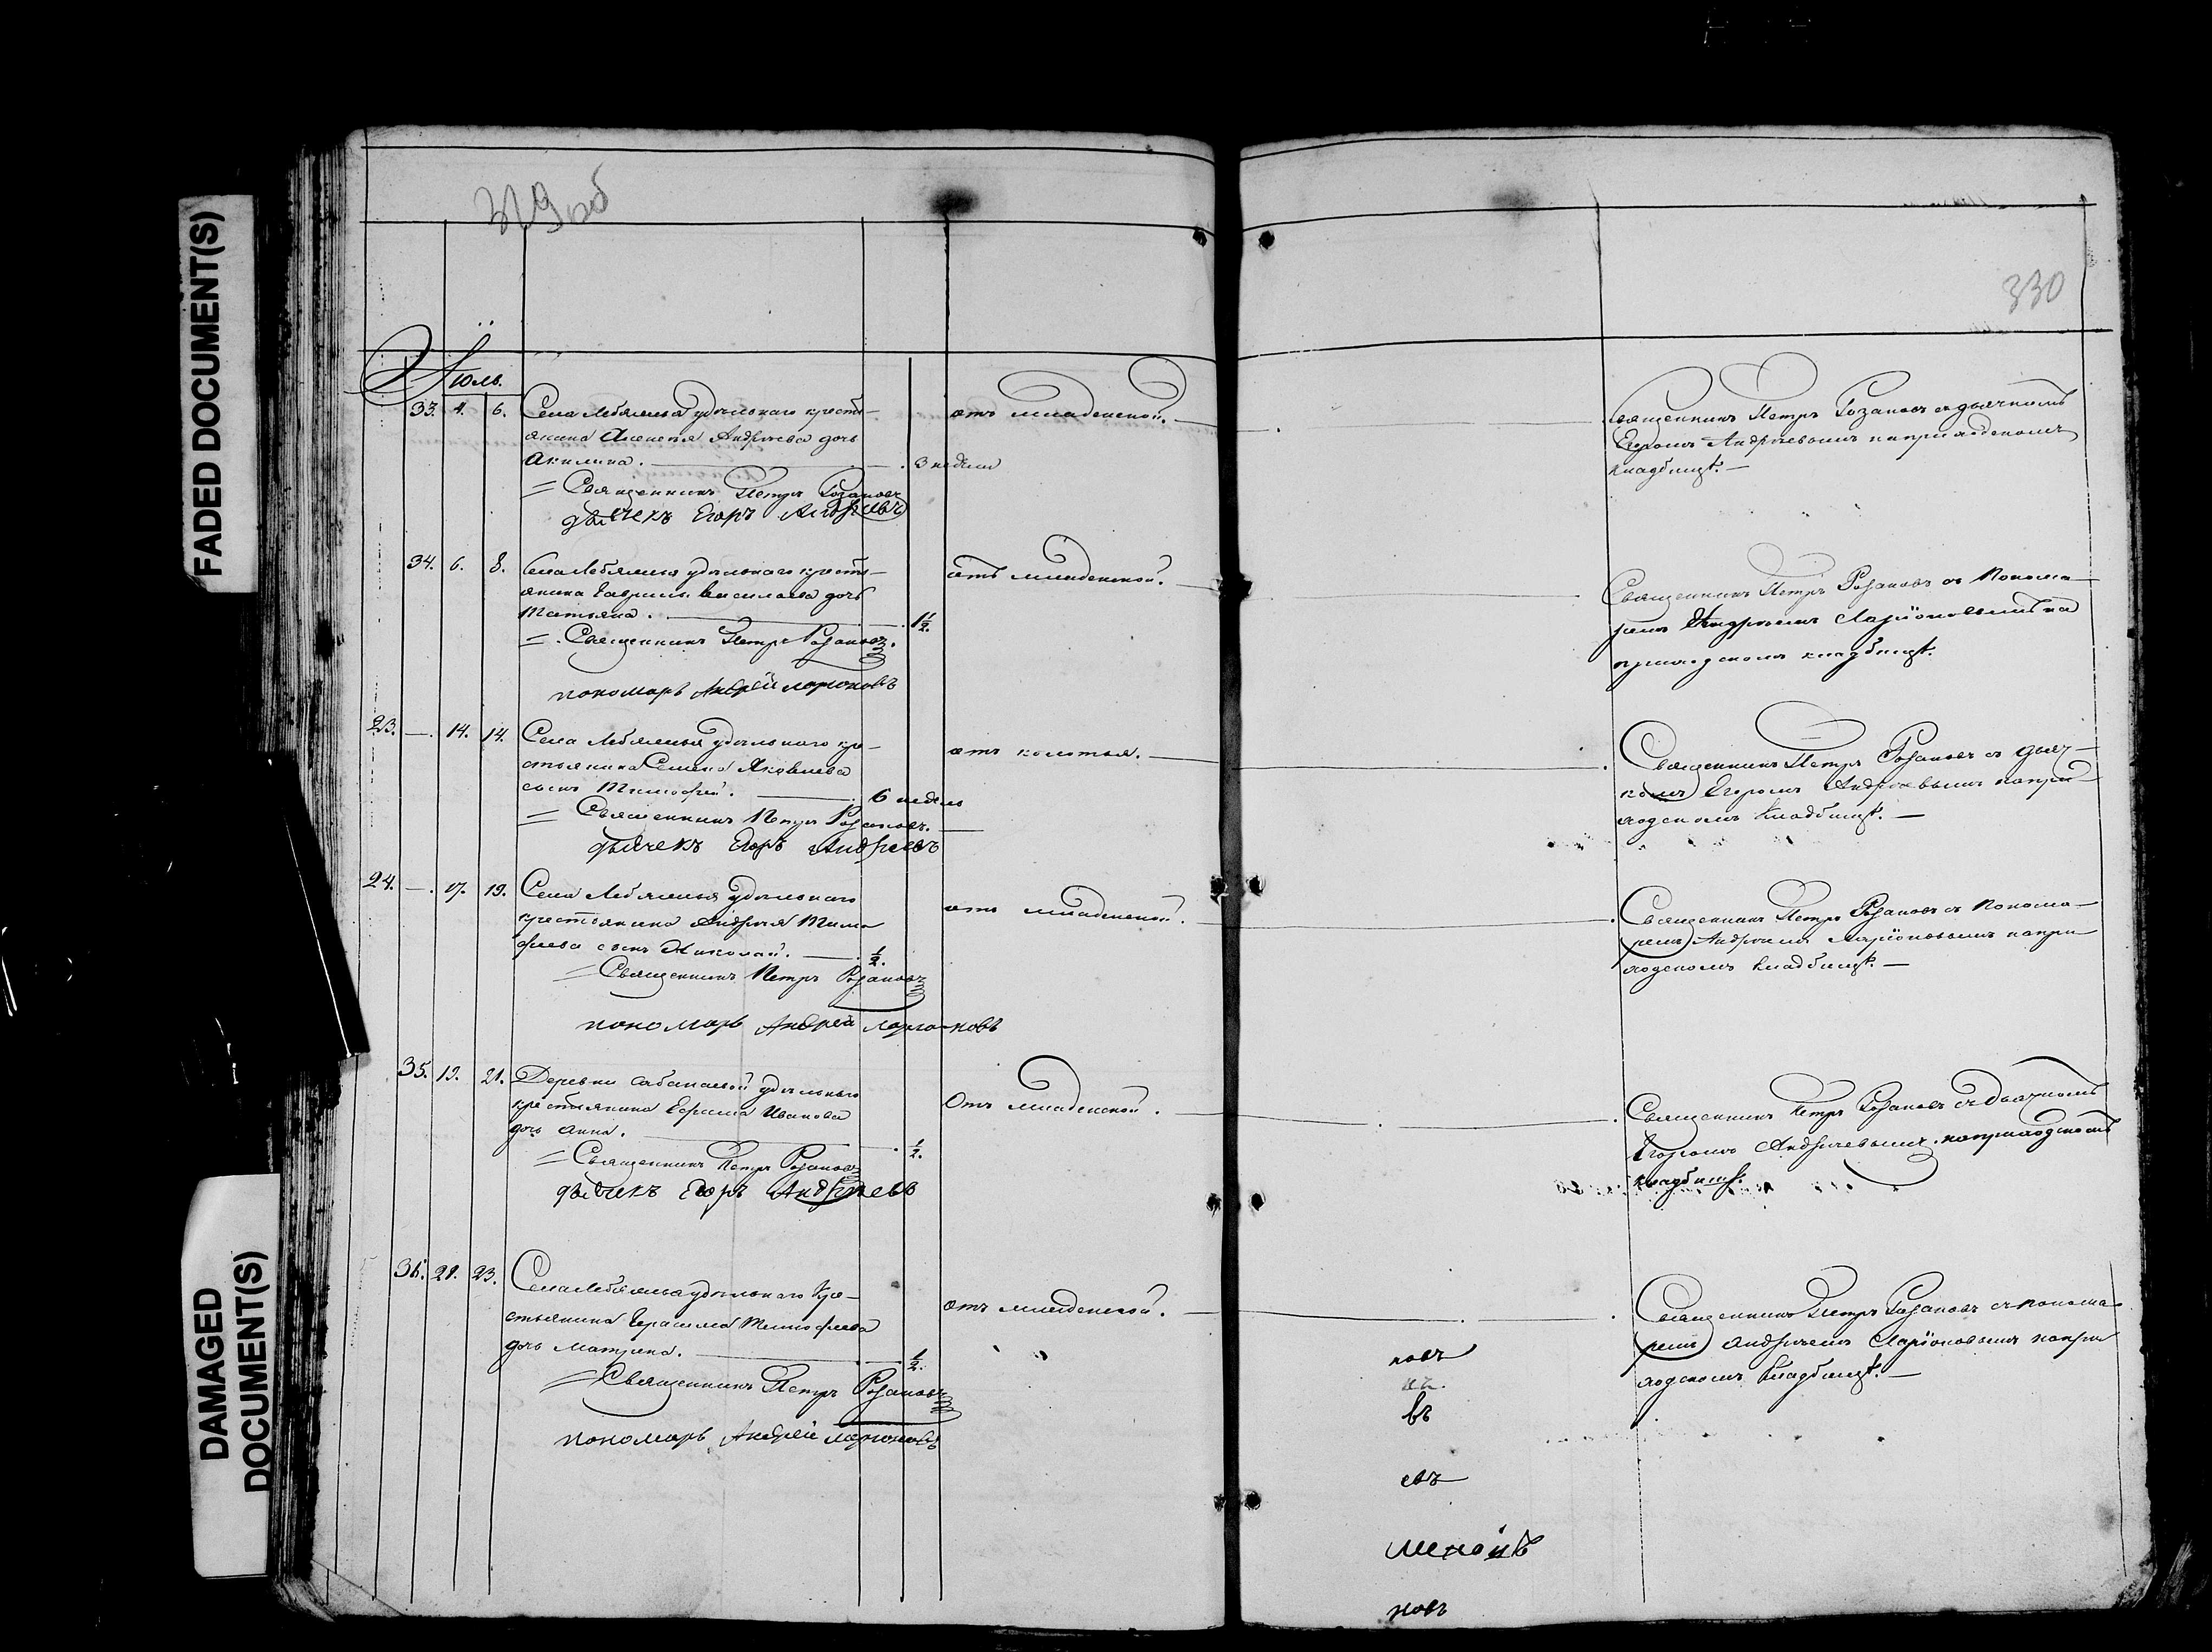 FADED DOCUMENT(S)
DAMAGED
DOCUMENT(S)
329 об
330
Іюль.
33. 4. 6. Села Лебяжья удѣльнаго кресть-
янина Алексея Андреева дочь
Акилина. 3 недели
отъ младенской.
Священникъ Петръ Розановъ
дьячекъ Егоръ Андреевъ
Священникъ Петръ Розановъ съ дьячкомъ
Егоромъ Андреевымъ наприходскомъ
кладбищѣ.
34. 6. 8. Села Лебяжья удѣльнаго кресть-
янина Гаврилы Васильева дочь
Татьяна. 1 1/2.
отъ младенской.
Священникъ Петръ Розановъ.
пономарь Андрей Ларионовъ
Священникъ Петръ Розановъ съ Понома-
ремъ Андреемъ Ларіоновымъ на
приходскомъ кладбищѣ.
23. —. 14. 14. Села Лебяжья удѣльнаго кре-
стьянина Семена Яковлева
сынъ Тимофей. 6 недель
отъ колотья.
Священникъ Петръ Розановъ.
дьячекъ Егоръ Андреевъ
Священникъ Петръ Розановъ съ дьяч-
комъ Егоромъ Андреевымъ напри-
ходскомъ кладбищѣ.
24. —. 17. 19. Села Лебяжья удѣльнаго
крестьянина Андрея Тимо
феева сынъ Николай. 1/2.
отъ младенской.
Священникъ Петръ Розановъ
пономарь Андрей Ларионовъ
Священникъ Петръ Розановъ съ Понома-
ремъ Андреемъ Ларіоновымъ напри
ходскомъ кладбищѣ.
35. 19. 21. Деревни удѣльнаго
крестьянина Ефима Иванова
дочь Анна. 1/2.
Отъ младенской.
Священникъ Петръ Розановъ
дьячекъ Егоръ Андреевъ
Священникъ Петръ Розановъ съ Дьячкомъ
Егоромъ Андреевымъ наприходскомъ
кладбищѣ.
36. 21. 23. Села Лебяжья удѣльнаго Кре-
стьянина Герасима Тимофеева
дочь Матрена. 1/2.
отъ младенской.
Священникъ Петръ Розановъ
пономарь Андрей Ларионовъ
Священникъ Петръ Розановъ съ понома-
ремъ Андреемъ Ларіоновымъ напри
ходскомъ кладбищѣ.
новъ
въ
евъ
новъ